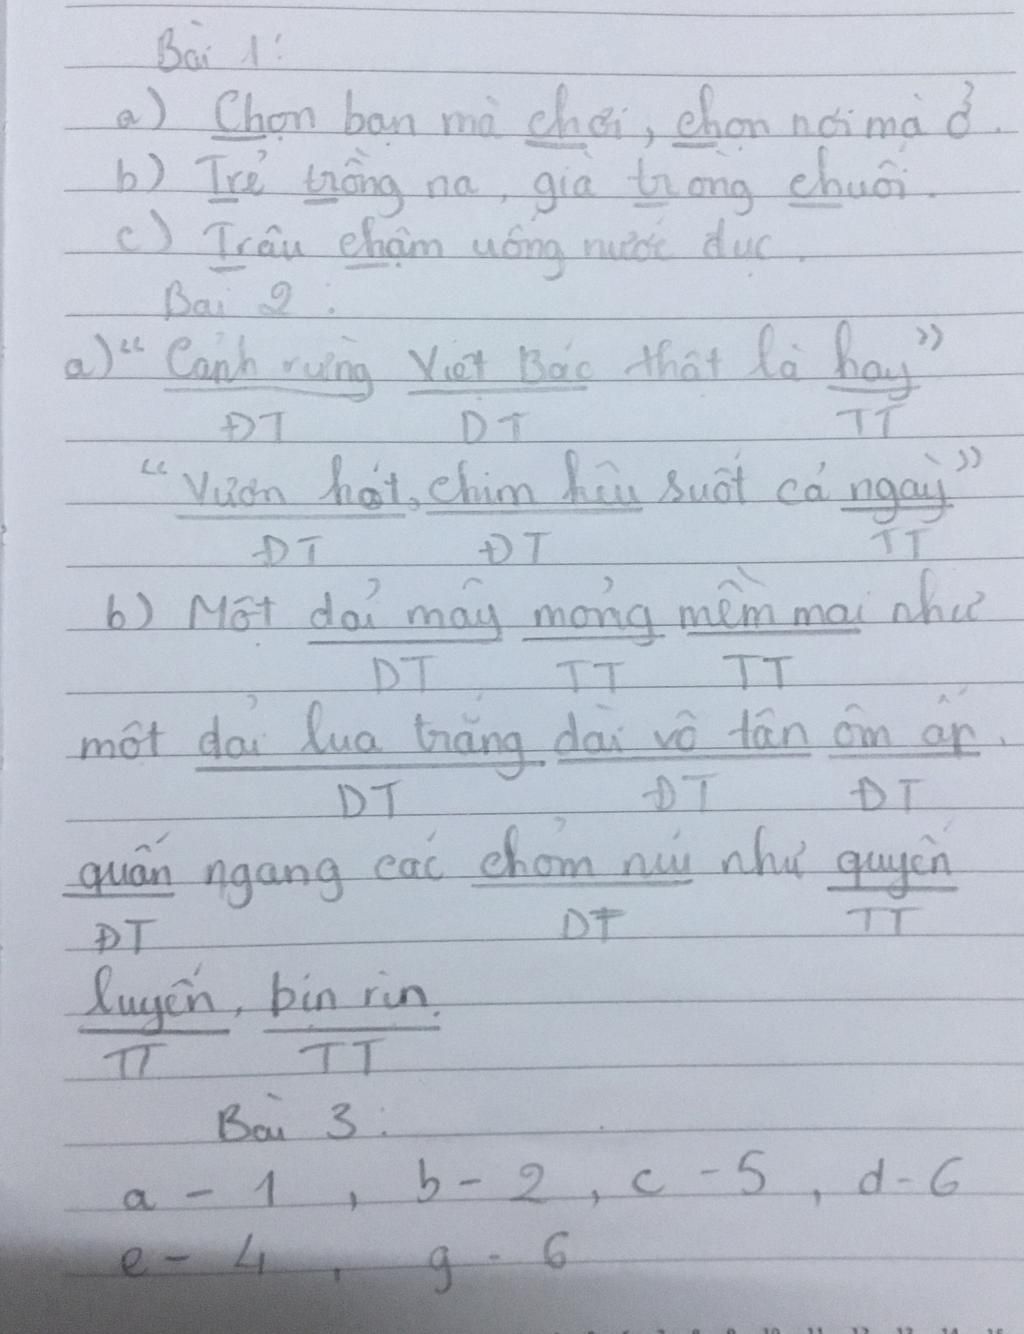 Bài 1:
a) Chọn bạn mà chơi, chọn nơi mà ở.
b) Trẻ trồng na, già trồng chuối.
c) Trâu chậm uống nước đục.
Bài 2:
a) "Cảnh rừng Việt Bắc thật là hay"
ĐT DT TT
"Vượn hót, chim kêu suốt cả ngày"
ĐT ĐT TT
b) Một dải mây mỏng mềm mại như
DT TT TT
một dải lụa trắng dài vô tận ôm ấp,
DT ĐT ĐT
quấn ngang các chỏm núi như quyến
ĐT DT TT
luyến, bịn rịn.
TT TT
Bài 3:
a - 1, b - 2, c - 5, d - 6
e - 4, g - 6